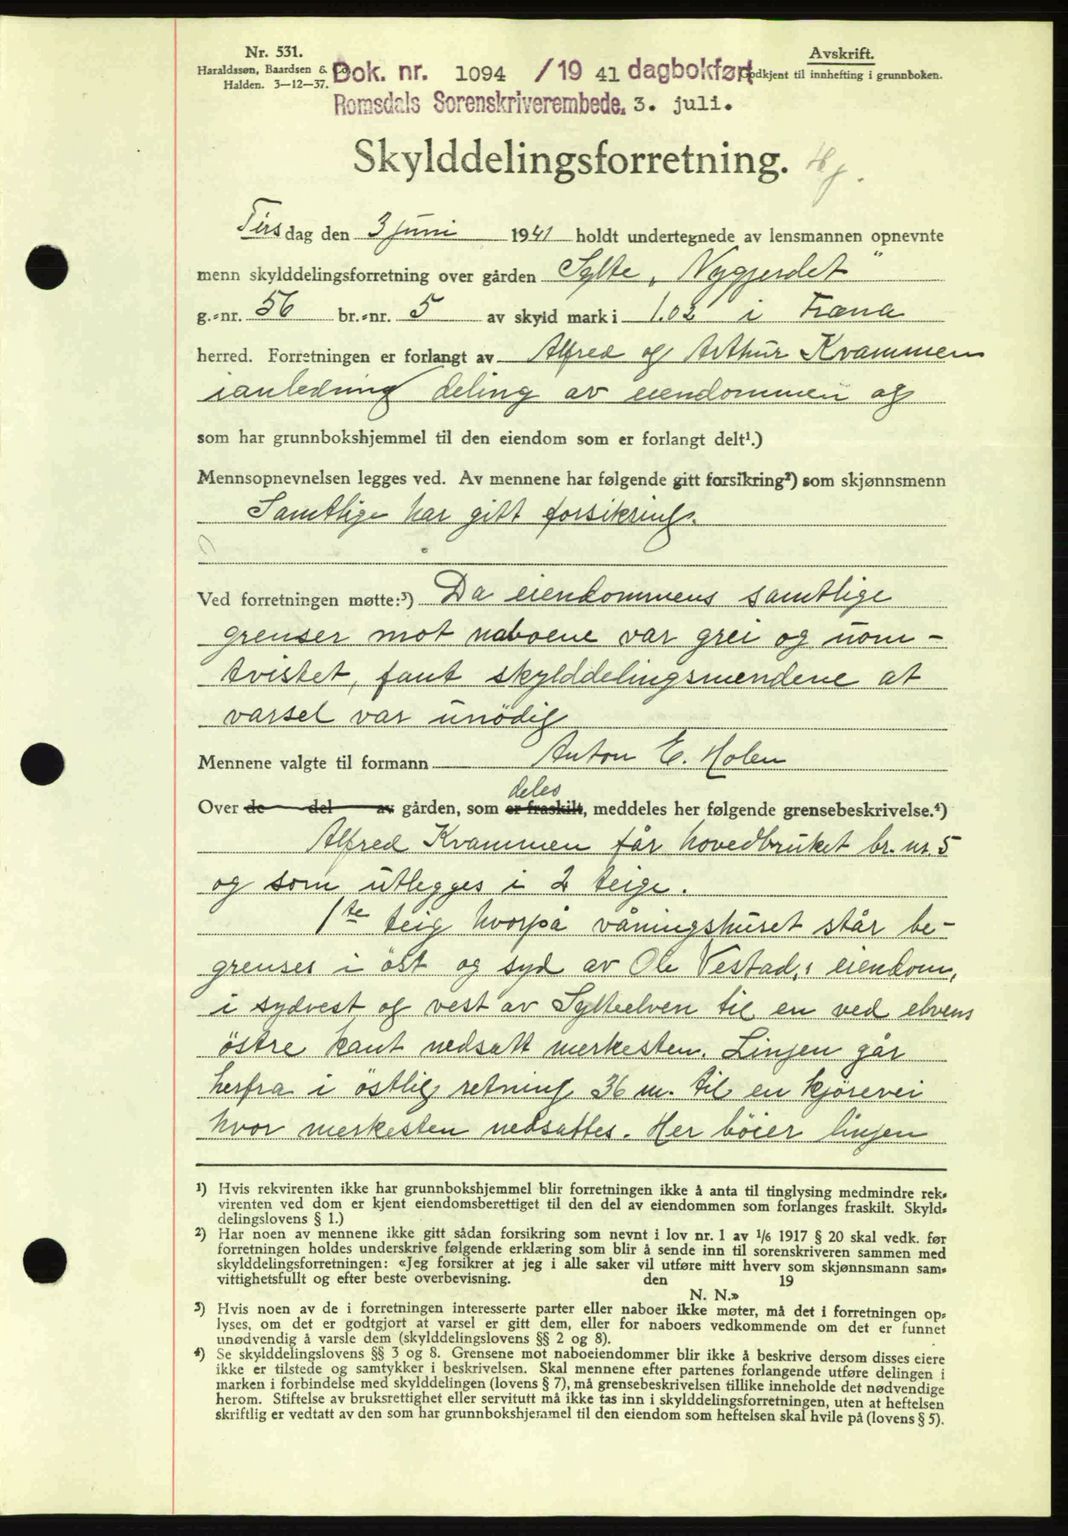 Nr. 531.
Haraldssøn, Baardsen & Co.
Halden. 3-12-37.
Avskrift.
Godkjent til innhefting i grunnboken.
Dok. nr. 1094 /19 41 dagbokført
Romsdals Sorenskriverembede. 3. juli.
Skylddelingsforretning.
Tirsdag den 3 juni 1941 holdt undertegnede av lensmannen opnevnte
menn skylddelingsforretning over gården Sylte „Nygjerdet"
g.-nr. 56 br.-nr. 5 av skyld mark i 1.02 i Fræna
herred. Forretningen er forlangt av Alfred og Arthur Kvammen
ianledning deling av eiendommen og
som har grunnbokshjemmel til den eiendom som er forlangt delt¹.)
Mennsopnevnelsen legges ved. Av mennene har følgende gitt forsikring²) som skjønnsmenn
Samtlige har gitt forsikring.
Ved forretningen møtte:³) Da eiendommens samtlige
grenser mot naboene var grei og uom-
tvistet, fant skylddelingsmendene at
varsel var unödig
Mennene valgte til formann Anton E. Holen
deles
Over de del av gården, som er fraskilt, meddeles her følgende grensebeskrivelse.⁴)
Alfred Kvammen får hovedbruket br. nr. 5
og som utlegges i 2 teige.
1te teig hvorpå våningshuset står be-
grenses i öst og syd av Ole Vestad,s eiendom,
i sydvest og vest av Sylteelven til en ved elvens
östre kant nedsatt merkesten. Linjen går
herfra i östlig retning 36 m. til en kjörevei
hvor merkesten nedsattes. Her böier linjen
¹) Hvis rekvirenten ikke har grunnbokshjemmel blir forretningen ikke å anta til tinglysing medmindre rek-
virenten ved dom er kjent eiendomsberettiget til den del av eiendommen som forlanges fraskilt. Skyld-
delingslovens § 1.)
²) Har noen av mennene ikke gitt sådan forsikring som nevnt i lov nr. 1 av 1/6 1917 § 20 skal vedk. før
forretningen holdes underskrive følgende erklæring som blir å sende inn til sorenskriveren sammen med
skylddelingsforretningen: «Jeg forsikrer at jeg i alle saker vil utføre mitt hverv som skjønnsmann sam-
vittighetsfullt og efter beste overbevisning. den 19
N. N.»
³) Hvis noen av de i forretningen interesserte parter eller naboer ikke møter, må det i forretningen op-
lyses, om det er godtgjort at varsel er gitt dem, eller for naboers vedkommende om det er funnet
unødvendig å varsle dem (skylddelingslovens §§ 2 og 8).
⁴) Se skylddelingslovens §§ 3 og 8. Grensene mot naboeiendommer blir ikke å beskrive dersom disses eiere
ikke er tilstede og samtykker i beskrivelsen. Skal mennene efter partenes forlangende utføre delingen i
marken i forbindelse med skylddelingen (lovens § 7), må grensebeskrivelsen tillike inneholde det nødvendige
herom. Stiftelse av bruksrettighet eller servitutt må ikke tas inn i skylddelingsforretningen, uten at heftelsen
skriftlig er vedtatt av den som har grunnbokshjemmel til den eiendom som heftelsen skal hvile på (lovens § 5).